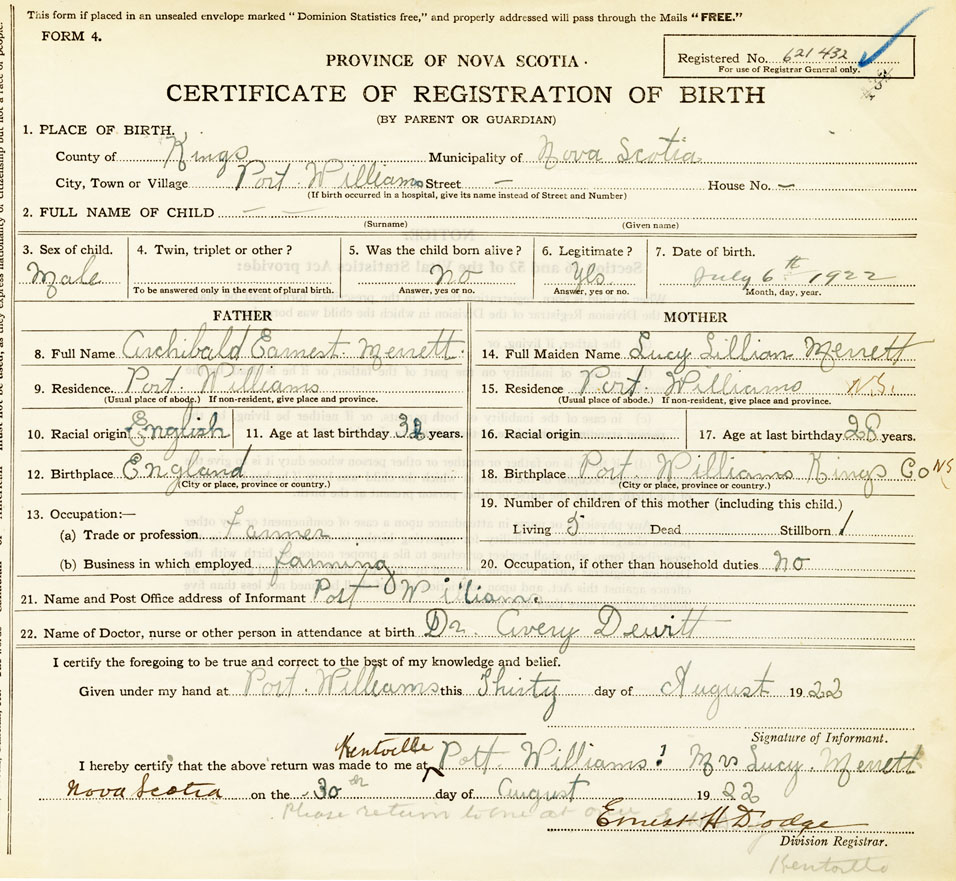 This form if placed in an unsealed envelope marked "Dominion Statistics free," and properly addressed will pass through the Mails "FREE."
FORM 4.
Registered No. 621432
For use of Registrar General only.
PROVINCE OF NOVA SCOTIA.
CERTIFICATE OF REGISTRATION OF BIRTH
(BY PARENT OR GUARDIAN)
1. PLACE OF BIRTH.
County of Kings Municipality of Nova Scotia
City, Town or Village Port Williams Street — House No. —
(If birth occurred in a hospital, give its name instead of Street and Number)
2. FULL NAME OF CHILD — —
(Surname) (Given name)
3. Sex of child. 4. Twin, triplet or other? 5. Was the child born alive? 6. Legitimate? 7. Date of birth.
Male no Yes. July 6th 1922
To be answered only in the event of plural birth. Answer, yes or no. Answer, yes or no. Month, day, year.
FATHER MOTHER
8. Full Name Archibald Earnest Merrett. 14. Full Maiden Name Lucy Lillian Merrett
9. Residence. Port Williams 15. Residence Port Williams N.S.
(Usual place of abode.) If non-resident, give place and province. (Usual place of abode.) If non-resident, give place and province.
10. Racial origin English 11. Age at last birthday years. 16. Racial origin 17. Age at last birthday 28 years.
12. Birthplace England 18. Birthplace Port Williams Kings Co NS
(City or place, province or country.) (City or place, province or country.)
13. Occupation:— 19. Number of children of this mother (including this child.)
(a) Trade or profession farmer Living 5 Dead Stillborn 1
(b) Business in which employed farming 20. Occupation, if other than household duties no
21. Name and Post Office address of Informant Port Williams
22. Name of Doctor, nurse or other person in attendance at birth Dr. Avery Dewitt
I certify the foregoing to be true and correct to the best of my knowledge and belief.
Given under my hand at Port Williams this Thirty day of August 1922
Signature of Informant.
Kentville
I hereby certify that the above return was made to me at Port Williams. Mrs Lucy. Merrett
Nova Scotia on the 30th day of August 1922
Please return to me at
Ernest H Dodge
Division Registrar.
Kentville